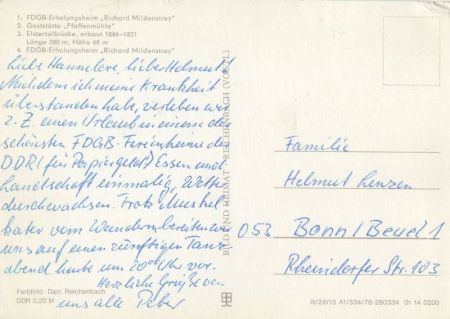 1. FDGB-Erholungsheim „Richard Mildenstrey"
2. Gaststätte „Pfaffenmühle"
3. Elstertalbrücke, erbaut 1846–1851
Länge 280 m, Höhe 68 m
4. FDGB-Erholungsheim „Richard Mildenstrey"
Liebe Hannelore, lieber Helmut!
Nachdem ich meine Krankheit
überstanden habe, verleben wir
z. Z. einen Urlaub in einem der
schönsten FDGB-Ferienheime der
DDR (für Papiergeld) Essen und
Landschaft einmalig, Wetter
durchwachsen. Trotz Muskel
kater vom Wandern bereiten wir
uns auf einen zünftigen Tanz
abend heute um 20⁰⁰ Uhr vor.
Herzliche Grüße von
uns alle Peter
Farbfoto: Darr, Reichenbach
DDR 0,20 M
BILD UND HEIMAT REICHENBACH (VOGTL)
Familie
Helmut Lenzen
053 Bonn/Beuel 1
Rheindorfer Str. 103
III/26/13 A1/334/78-280334 01 14 0200